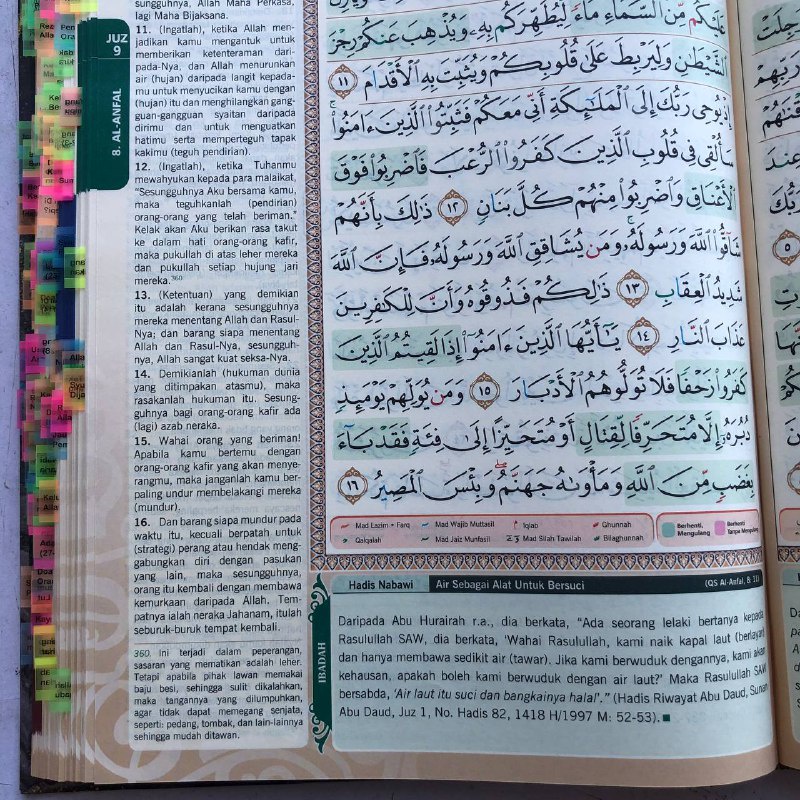 sungguhnya, Allah Maha Perkasa,
lagi Maha Bijaksana.
JUZ
9
8. AL-ANFAL
11. (Ingatlah), ketika Allah men-
jadikan kamu mengantuk untuk
memberikan ketenteraman dari-
pada-Nya, dan Allah menurunkan
air (hujan) daripada langit kepada-
mu untuk menyucikan kamu dengan
(hujan) itu dan menghilangkan gang-
guan-gangguan syaitan daripada
dirimu dan untuk menguatkan
hatimu serta memperteguh tapak
kakimu (teguh pendirian).
12. (Ingatlah), ketika Tuhanmu
mewahyukan kepada para malaikat,
"Sesungguhnya Aku bersama kamu,
maka teguhkanlah (pendirian)
orang-orang yang telah beriman."
Kelak akan Aku berikan rasa takut
ke dalam hati orang-orang kafir,
maka pukullah di atas leher mereka
dan pukullah setiap hujung jari
mereka.³⁶⁰
13. (Ketentuan) yang demikian
itu adalah kerana sesungguhnya
mereka menentang Allah dan Rasul-
Nya; dan barang siapa menentang
Allah dan Rasul-Nya, sesungguh-
nya, Allah sangat kuat seksa-Nya.
14. Demikianlah (hukuman dunia
yang ditimpakan atasmu), maka
rasakanlah hukuman itu. Sesung-
guhnya bagi orang-orang kafir ada
(lagi) azab neraka.
15. Wahai orang yang beriman!
Apabila kamu bertemu dengan
orang-orang kafir yang akan menye-
rangmu, maka janganlah kamu ber-
paling undur membelakangi mereka
(mundur).
16. Dan barang siapa mundur pada
waktu itu, kecuali berpatah untuk
(strategi) perang atau hendak meng-
gabungkan diri dengan pasukan
yang lain, maka sesungguhnya,
orang itu kembali dengan membawa
kemurkaan daripada Allah. Tem-
patnya ialah neraka Jahanam, itulah
seburuk-buruk tempat kembali.
360. Ini terjadi dalam peperangan,
sasaran yang mematikan adalah leher.
Tetapi apabila pihak lawan memakai
baju besi, sehingga sulit dikalahkan,
maka tangannya yang dilumpuhkan,
agar tidak dapat memegang senjata,
seperti: pedang, tombak, dan lain-lainnya
sehingga mudah ditawan.
عَلَيْكُم مِّنَ ٱلسَّمَآءِ مَآءً لِّيُطَهِّرَكُم بِهِۦ وَيُذْهِبَ عَنكُمْ رِجْزَ
ٱلشَّيْطَٰنِ وَلِيَرْبِطَ عَلَىٰ قُلُوبِكُمْ وَيُثَبِّتَ بِهِ ٱلْأَقْدَامَ ١١
إِذْ يُوحِى رَبُّكَ إِلَى ٱلْمَلَٰٓئِكَةِ أَنِّى مَعَكُمْ فَثَبِّتُوا۟ ٱلَّذِينَ ءَامَنُوا۟ ۚ
سَأُلْقِى فِى قُلُوبِ ٱلَّذِينَ كَفَرُوا۟ ٱلرُّعْبَ فَٱضْرِبُوا۟ فَوْقَ
ٱلْأَعْنَاقِ وَٱضْرِبُوا۟ مِنْهُمْ كُلَّ بَنَانٍ ١٢ ذَٰلِكَ بِأَنَّهُمْ
شَآقُّوا۟ ٱللَّهَ وَرَسُولَهُۥ ۚ وَمَن يُشَاقِقِ ٱللَّهَ وَرَسُولَهُۥ فَإِنَّ ٱللَّهَ
شَدِيدُ ٱلْعِقَابِ ١٣ ذَٰلِكُمْ فَذُوقُوهُ وَأَنَّ لِلْكَٰفِرِينَ
عَذَابَ ٱلنَّارِ ١٤ يَٰٓأَيُّهَا ٱلَّذِينَ ءَامَنُوٓا۟ إِذَا لَقِيتُمُ ٱلَّذِينَ
كَفَرُوا۟ زَحْفًا فَلَا تُوَلُّوهُمُ ٱلْأَدْبَارَ ١٥ وَمَن يُوَلِّهِمْ يَوْمَئِذٍ
دُبُرَهُۥٓ إِلَّا مُتَحَرِّفًا لِّقِتَالٍ أَوْ مُتَحَيِّزًا إِلَىٰ فِئَةٍ فَقَدْ بَآءَ
بِغَضَبٍ مِّنَ ٱللَّهِ وَمَأْوَىٰهُ جَهَنَّمُ ۖ وَبِئْسَ ٱلْمَصِيرُ ١٦
Mad Lazim • Farq Mad Wajib Muttasil Iqlab Ghunnah Berhenti, Mengulang Berhenti Tanpa Mengulang
Qalqalah Mad Jaiz Munfasil Mad Silah Tawilah Bilaghunnah
Hadis Nabawi Air Sebagai Alat Untuk Bersuci (QS Al-Anfal, 8: 11)
IBADAH
Daripada Abu Hurairah r.a., dia berkata, "Ada seorang lelaki bertanya kepada
Rasulullah SAW, dia berkata, 'Wahai Rasulullah, kami naik kapal laut (berlayar)
dan hanya membawa sedikit air (tawar). Jika kami berwuduk dengannya, kami akan
kehausan, apakah boleh kami berwuduk dengan air laut?' Maka Rasulullah SAW
bersabda, 'Air laut itu suci dan bangkainya halal'." (Hadis Riwayat Abu Daud, Sunan
Abu Daud, Juz 1, No. Hadis 82, 1418 H/1997 M: 52-53).